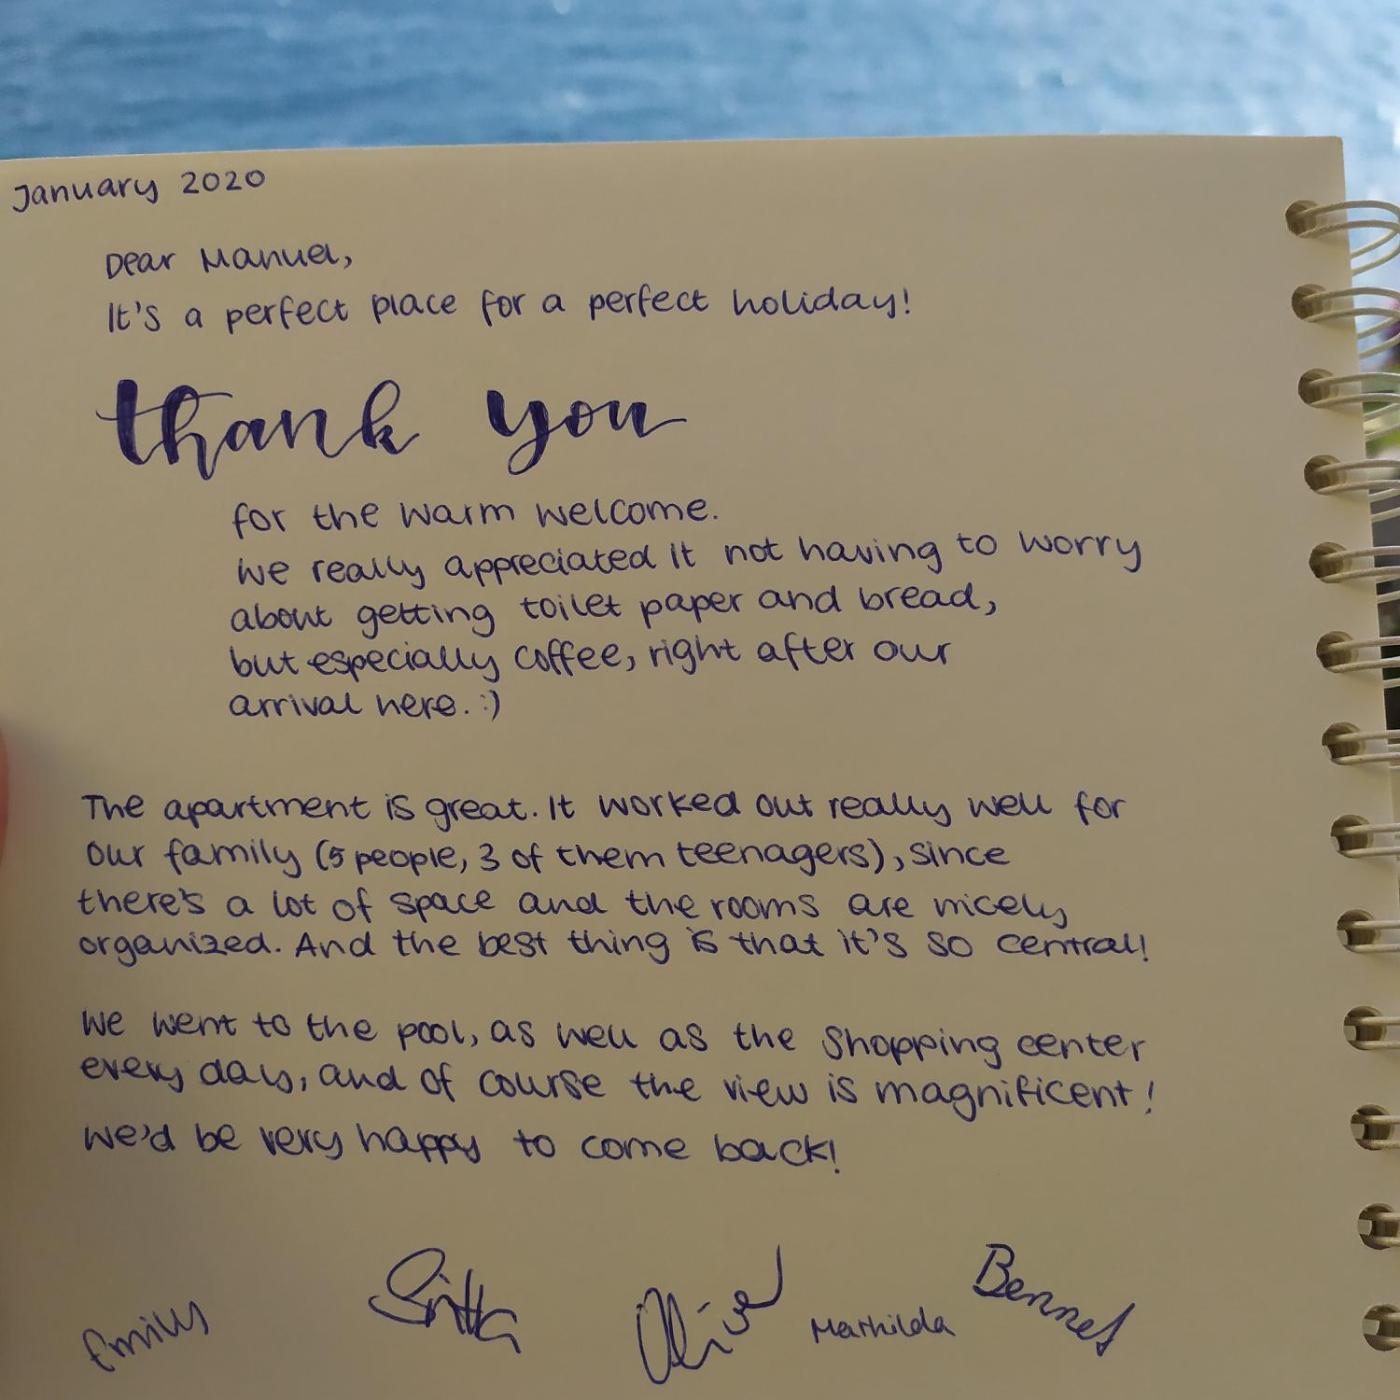 January 2020
Dear Manuel,
It's a perfect place for a perfect holiday!
thank you
for the warm welcome.
We really appreciated it not having to worry
about getting toilet paper and bread,
but especially coffee, right after our
arrival here. :)
The apartment is great. It worked out really well for
our family (5 people, 3 of them teenagers), since
there's a lot of space and the rooms are nicely
organized. And the best thing is that it's so central!
We went to the pool, as well as the Shopping center
every day, and of course the view is magnificent!
We'd be very happy to come back!
Emily Oliver Mathilda Bennet